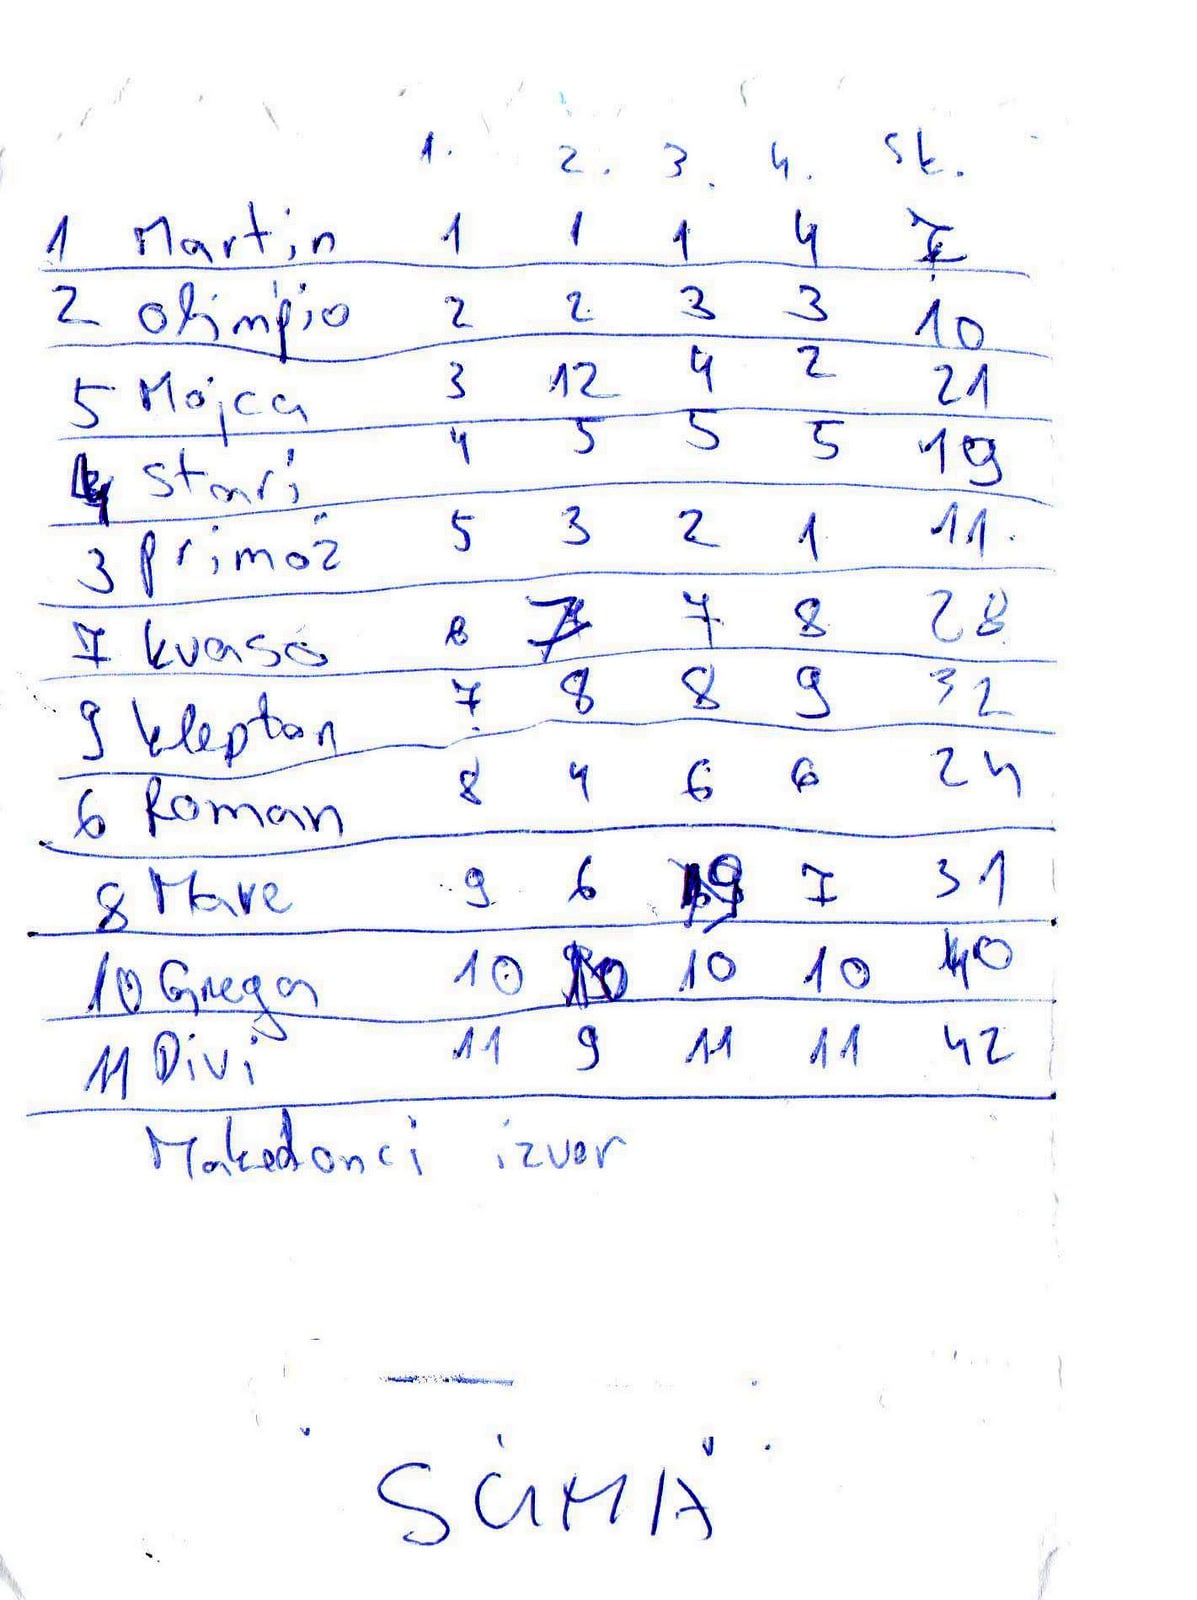 1. 2. 3. 4. Sk.
1 Martin 1 1 1 4 7
2 Olimpio 2 2 3 3 10
5 Mojca 3 12 4 2 21
4 Stari 4 5 5 5 19
3 Primož 5 3 2 1 11.
7 kvaso 6 7 7 8 28
9 klepton 7 8 8 9 32
6 Roman 8 4 6 6 24
8 Mare 9 6 9 7 31
10 Grega 10 10 10 10 40
11 Divi 11 9 11 11 42
Makedonci izvor